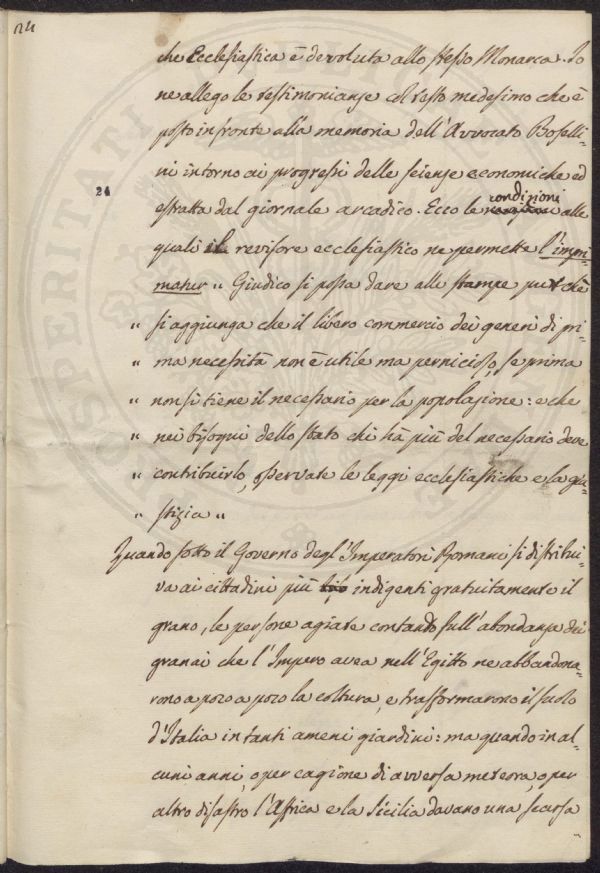 che Ecclesiastica è devoluta allo stesso Monarca. Io
ne allego le testimonianze col testo medesimo che è
posto in fronte alla memoria dell'Avvocato Boselli-
ni intorno ai progressi delle scienze economiche ed
24
estratta dal giornale arcadico. Ecco le condizioni alle
quali il revisore ecclesiastico ne permette l'impri-
matur „ Giudico si possa dare alle stampe purchè
„ si aggiunga che il libero commercio dei generi di pri-
„ ma necessità non è utile ma pernicioso, se prima
„ non si tiene il necessario per la popolazione: e che
„ nei bisogni dello stato chi ha più del necessario deve
„ contribuirlo, osservate le leggi ecclesiastiche e la giu-
„ stizia „
Quando sotto il Governo degl'Imperatori Romani si distribui-
va ai cittadini più indigenti gratuitamente il
grano, le persone agiate contando sull'abondanza dei
granai che l'Impero avea nell'Egitto ne abbandona-
rono a poco a poco la coltura, e trasformarono il suolo
d'Italia in tanti ameni giardini: ma quando in al-
cuni anni, o per cagione di avversa meteora, o per
altro disastro l'Affrica e la Sicilia davano una scarsa
PROSPERITATI PUBLICAE